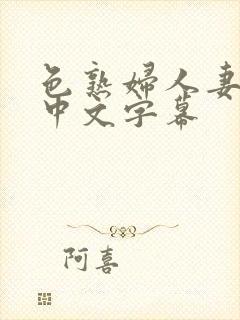 色熟婦人妻
中文字幕
阿喜